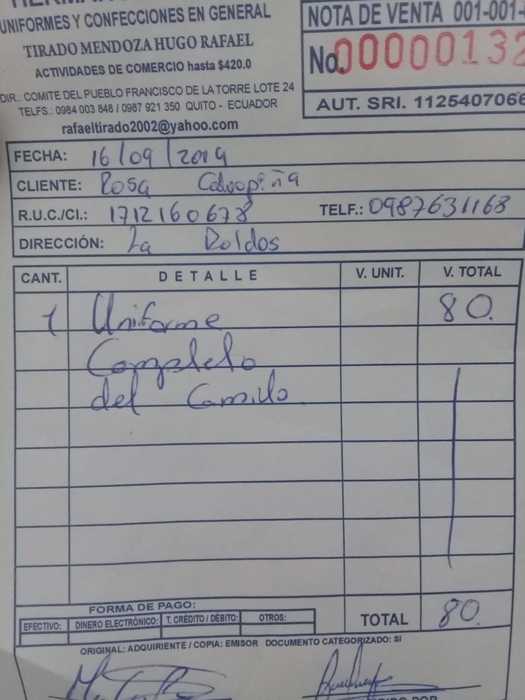 UNIFORMES Y CONFECCIONES EN GENERAL
TIRADO MENDOZA HUGO RAFAEL
ACTIVIDADES DE COMERCIO hasta $420.0
DIR.: COMITE DEL PUEBLO FRANCISCO DE LA TORRE LOTE 24
TELFS.: 0984 003 846 / 0987 921 350 QUITO - ECUADOR
rafaeltirado2002@yahoo.com
NOTA DE VENTA 001-001-
No. 00000132
AUT. SRI. 1125407066
FECHA: 16/09/2019
CLIENTE: Rosa Calvopiña
R.U.C./CI.: 1712160678 TELF.: 0987631168
DIRECCIÓN: La Roldos
CANT. DETALLE V. UNIT. V. TOTAL
1 Uniforme 80.
Completo
del Camilo
FORMA DE PAGO:
EFECTIVO: DINERO ELECTRÓNICO: T. CRÉDITO / DÉBITO: OTROS:
TOTAL 80.
ORIGINAL: ADQUIRIENTE / COPIA: EMISOR DOCUMENTO CATEGORIZADO: SI